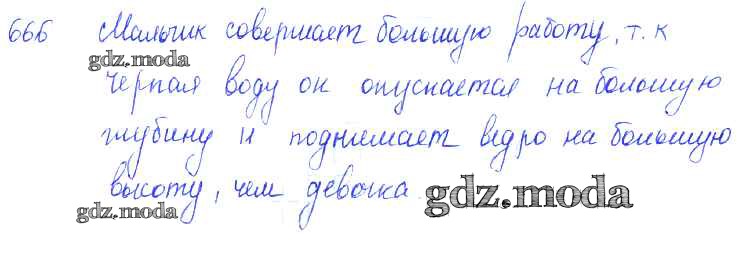 666 Мальчик совершает большую работу, т.к
gdz.moda
черпая воду он опускается на большую
глубину и поднимает ведро на большую
высоту, чем девочка gdz.moda
gdz.moda